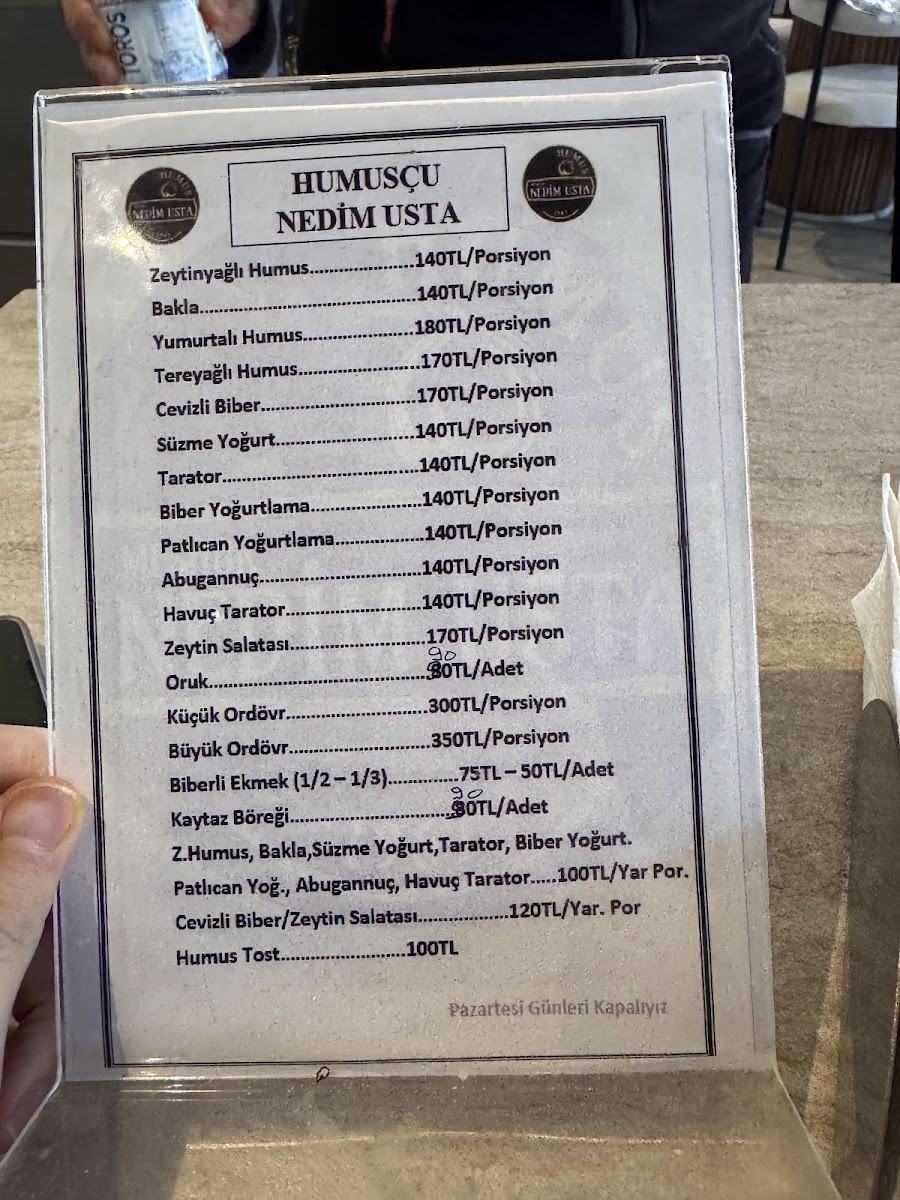 TOROS
HUMUS
NEDİM USTA
HUMUSÇU
NEDİM USTA
HUMUS
NEDİM USTA
Zeytinyağlı Humus.....................140TL/Porsiyon
Bakla............................................140TL/Porsiyon
Yumurtalı Humus......................180TL/Porsiyon
Tereyağlı Humus........................170TL/Porsiyon
Cevizli Biber...............................170TL/Porsiyon
Süzme Yoğurt............................140TL/Porsiyon
Tarator.......................................140TL/Porsiyon
Biber Yoğurtlama......................140TL/Porsiyon
Patlıcan Yoğurtlama..................140TL/Porsiyon
Abugannuç................................140TL/Porsiyon
Havuç Tarator...........................140TL/Porsiyon
Zeytin Salatası...........................170TL/Porsiyon
90
Oruk...........................................80TL/Adet
Küçük Ordövr............................300TL/Porsiyon
Büyük Ordövr............................350TL/Porsiyon
Biberli Ekmek (1/2 – 1/3)..............75TL – 50TL/Adet
90
Kaytaz Böreği................................80TL/Adet
Z.Humus, Bakla,Süzme Yoğurt,Tarator, Biber Yoğurt.
Patlıcan Yoğ., Abugannuç, Havuç Tarator.....100TL/Yar Por.
Cevizli Biber/Zeytin Salatası..................120TL/Yar. Por
Humus Tost.........................100TL
Pazartesi Günleri Kapalıyız